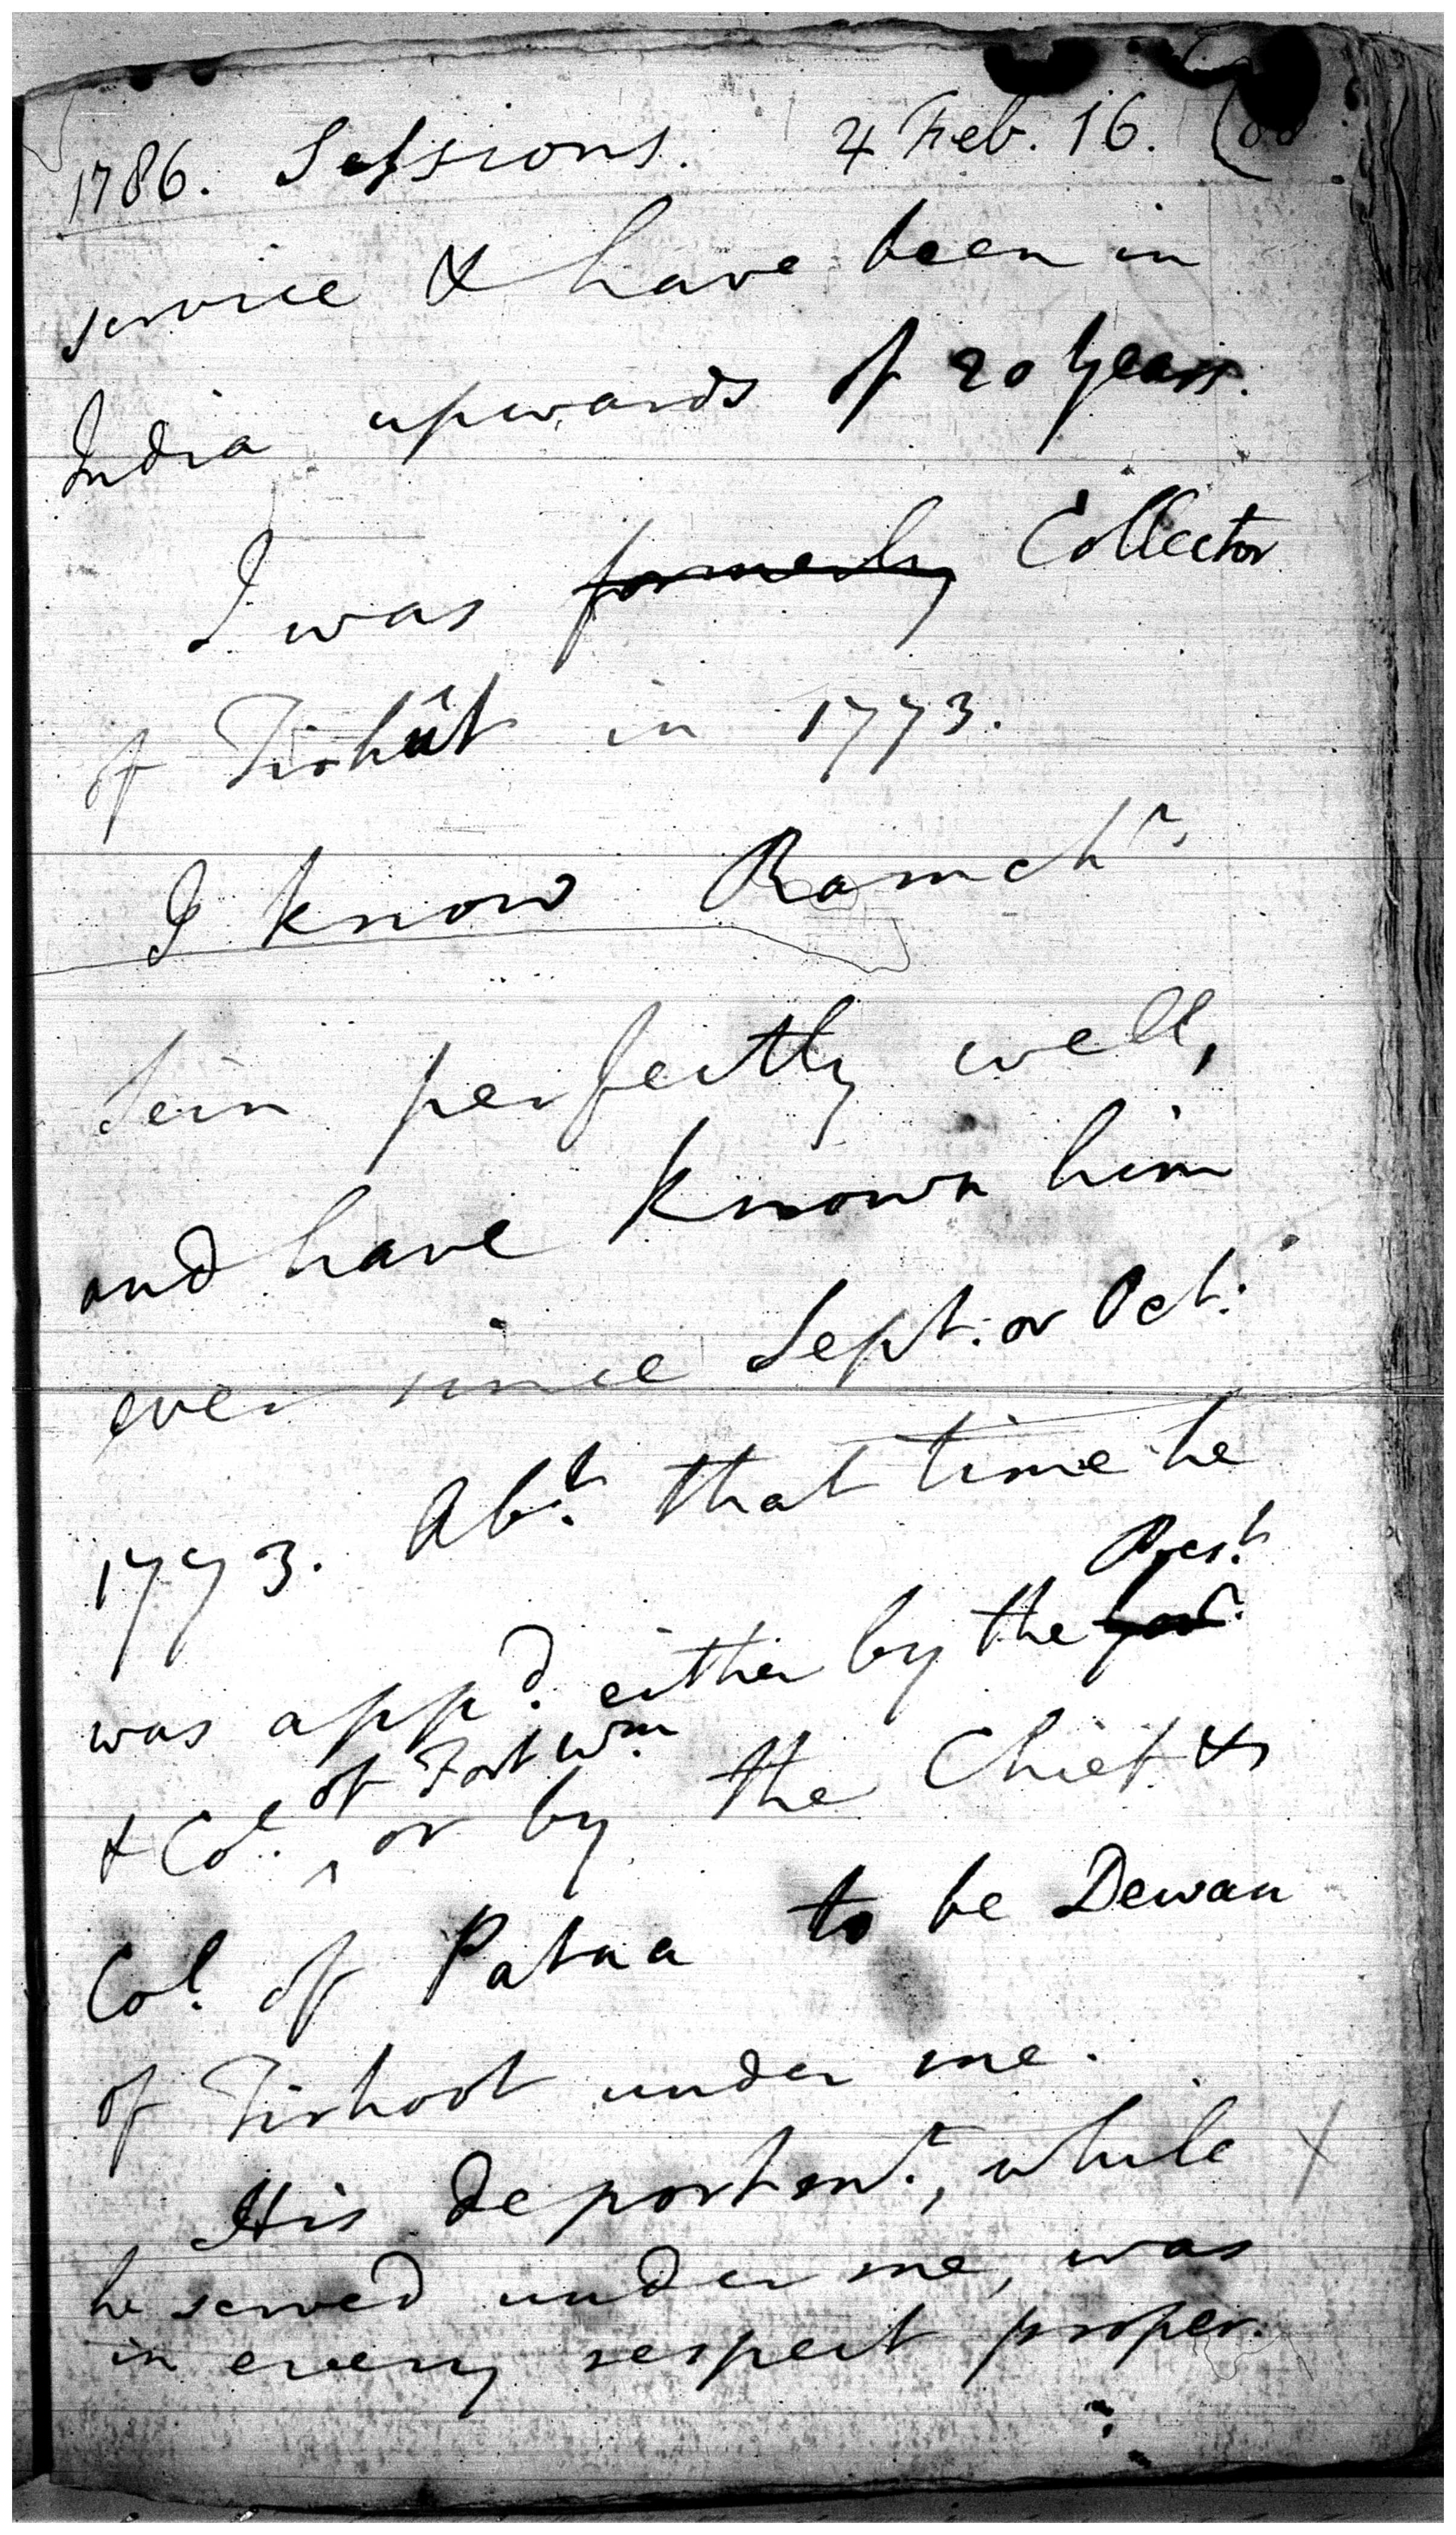 1786. Sessions. 4 Feb. 16.
service & have been in
India upwards of 20 years.
I was formerly Collector
of Tirhût in 1773.
I know Ramchr
Sein perfectly well,
and have known him
ever since Sept: or Oct:
1773. Abt. that time he
Prest.
was appd. either by the Govr.
of Fort Wm.
& Col. ^ or by the Chief &
Col. of Patna to be Dewan
of Tirhoot under me.
His deportmt., while
he served under me, was
in every respect proper.